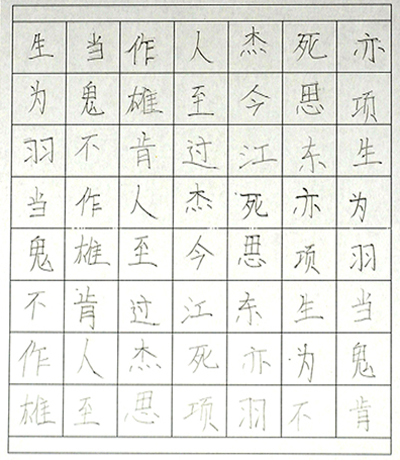 生当作人杰死亦
为鬼雄至今思项
羽不肯过江东生
当作人杰死亦为
鬼雄至今思项羽
不肯过江东生当
作人杰死亦为鬼
雄至思项羽不肯